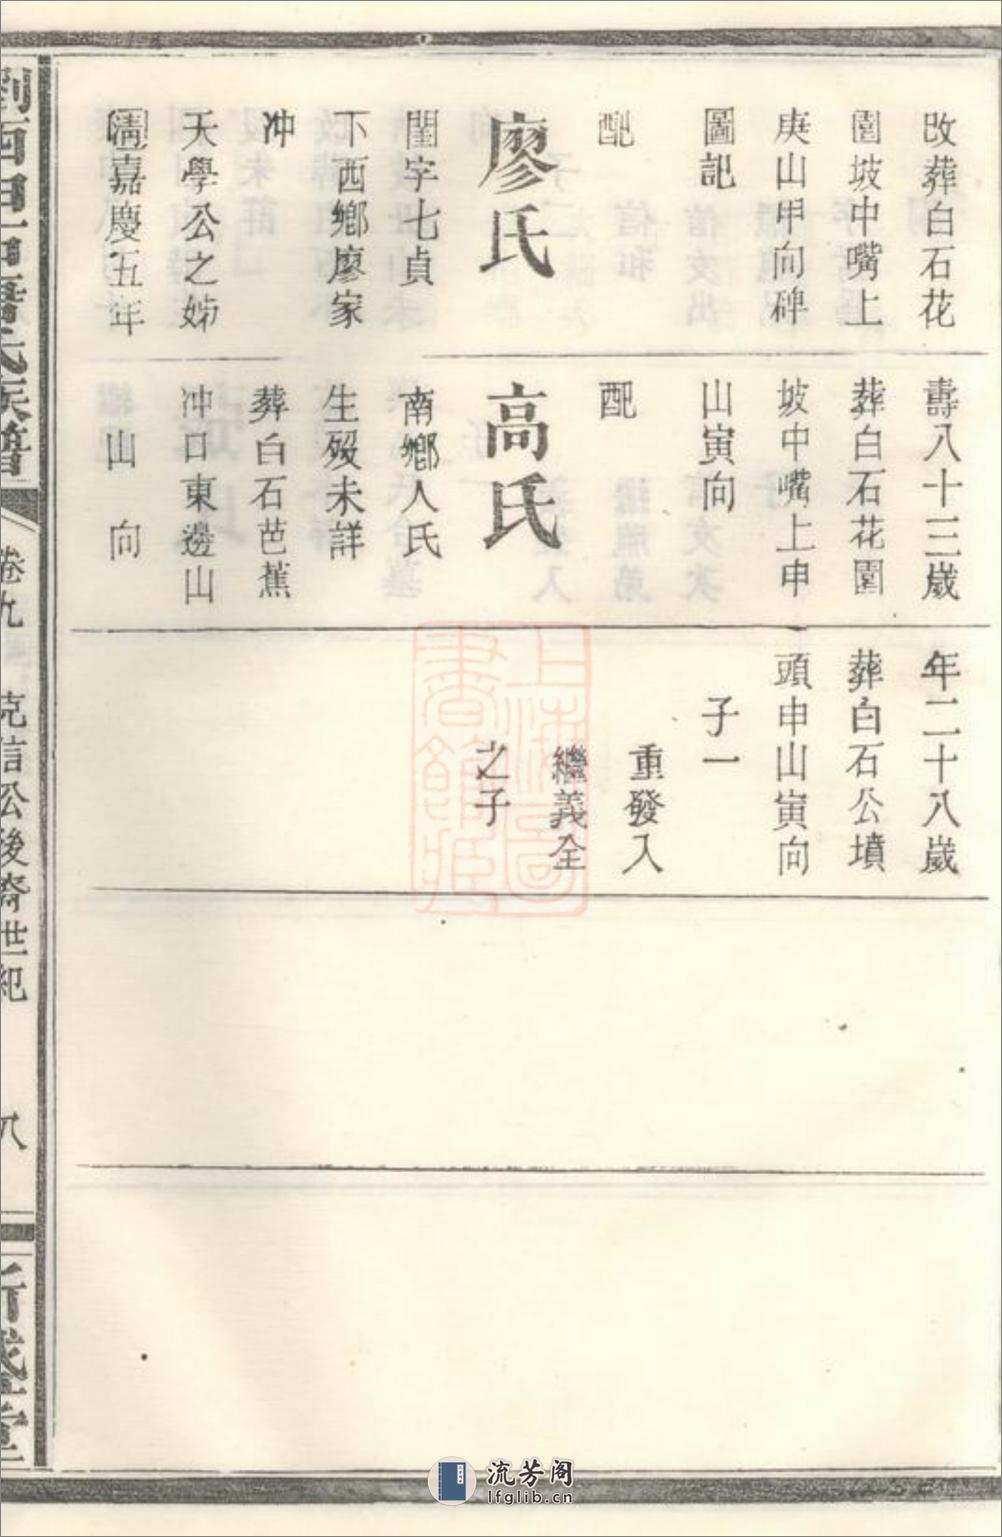 改葬白石花
園坡中嘴上
庚山甲向碑
圖記
配
廖氏
閨字七貞
下西鄉廖家
冲
天學公之姊
清嘉慶五年
壽八十三歲
葬白石花園
坡中嘴上申
山寅向
配
高氏
南鄉人氏
生歿未詳
葬白石芭蕉
冲口東邊山
山向
年二十八歲
葬白石公墳
頭申山寅向
子一
重發入
繼義全
之子
卷九
克信公後裔世紀
八
上海圖書館藏
流芳阁
lfglib.cn